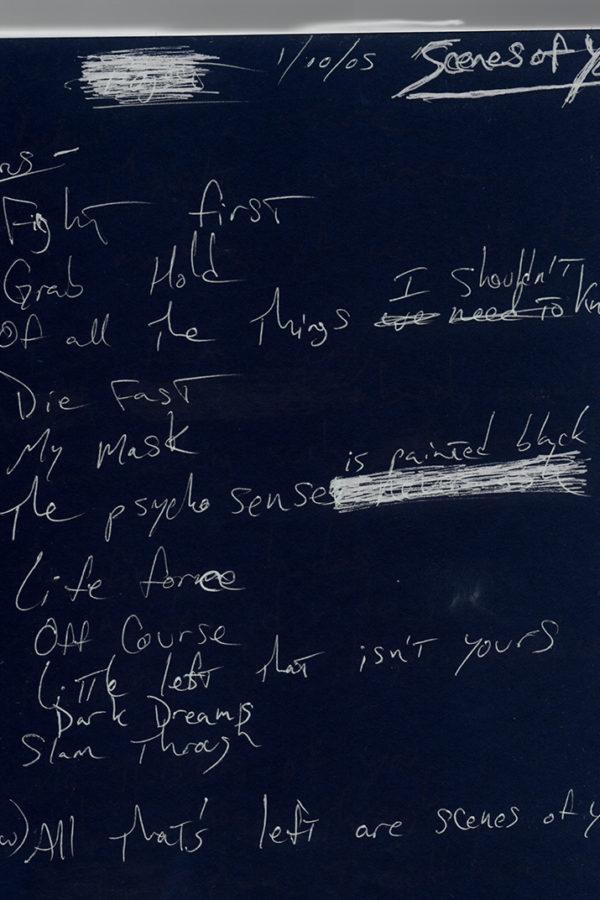 1/10/05 Scenes of Y
Fight first
Grab Hold
I shouldn't
Of all the things we need to Kn
Die Fast
My mask
is painted black
The psycho senses
Life force
Off Course
Little left that isn't yours
Dark Dreams
Slam Through
w) All that's left are scenes of y